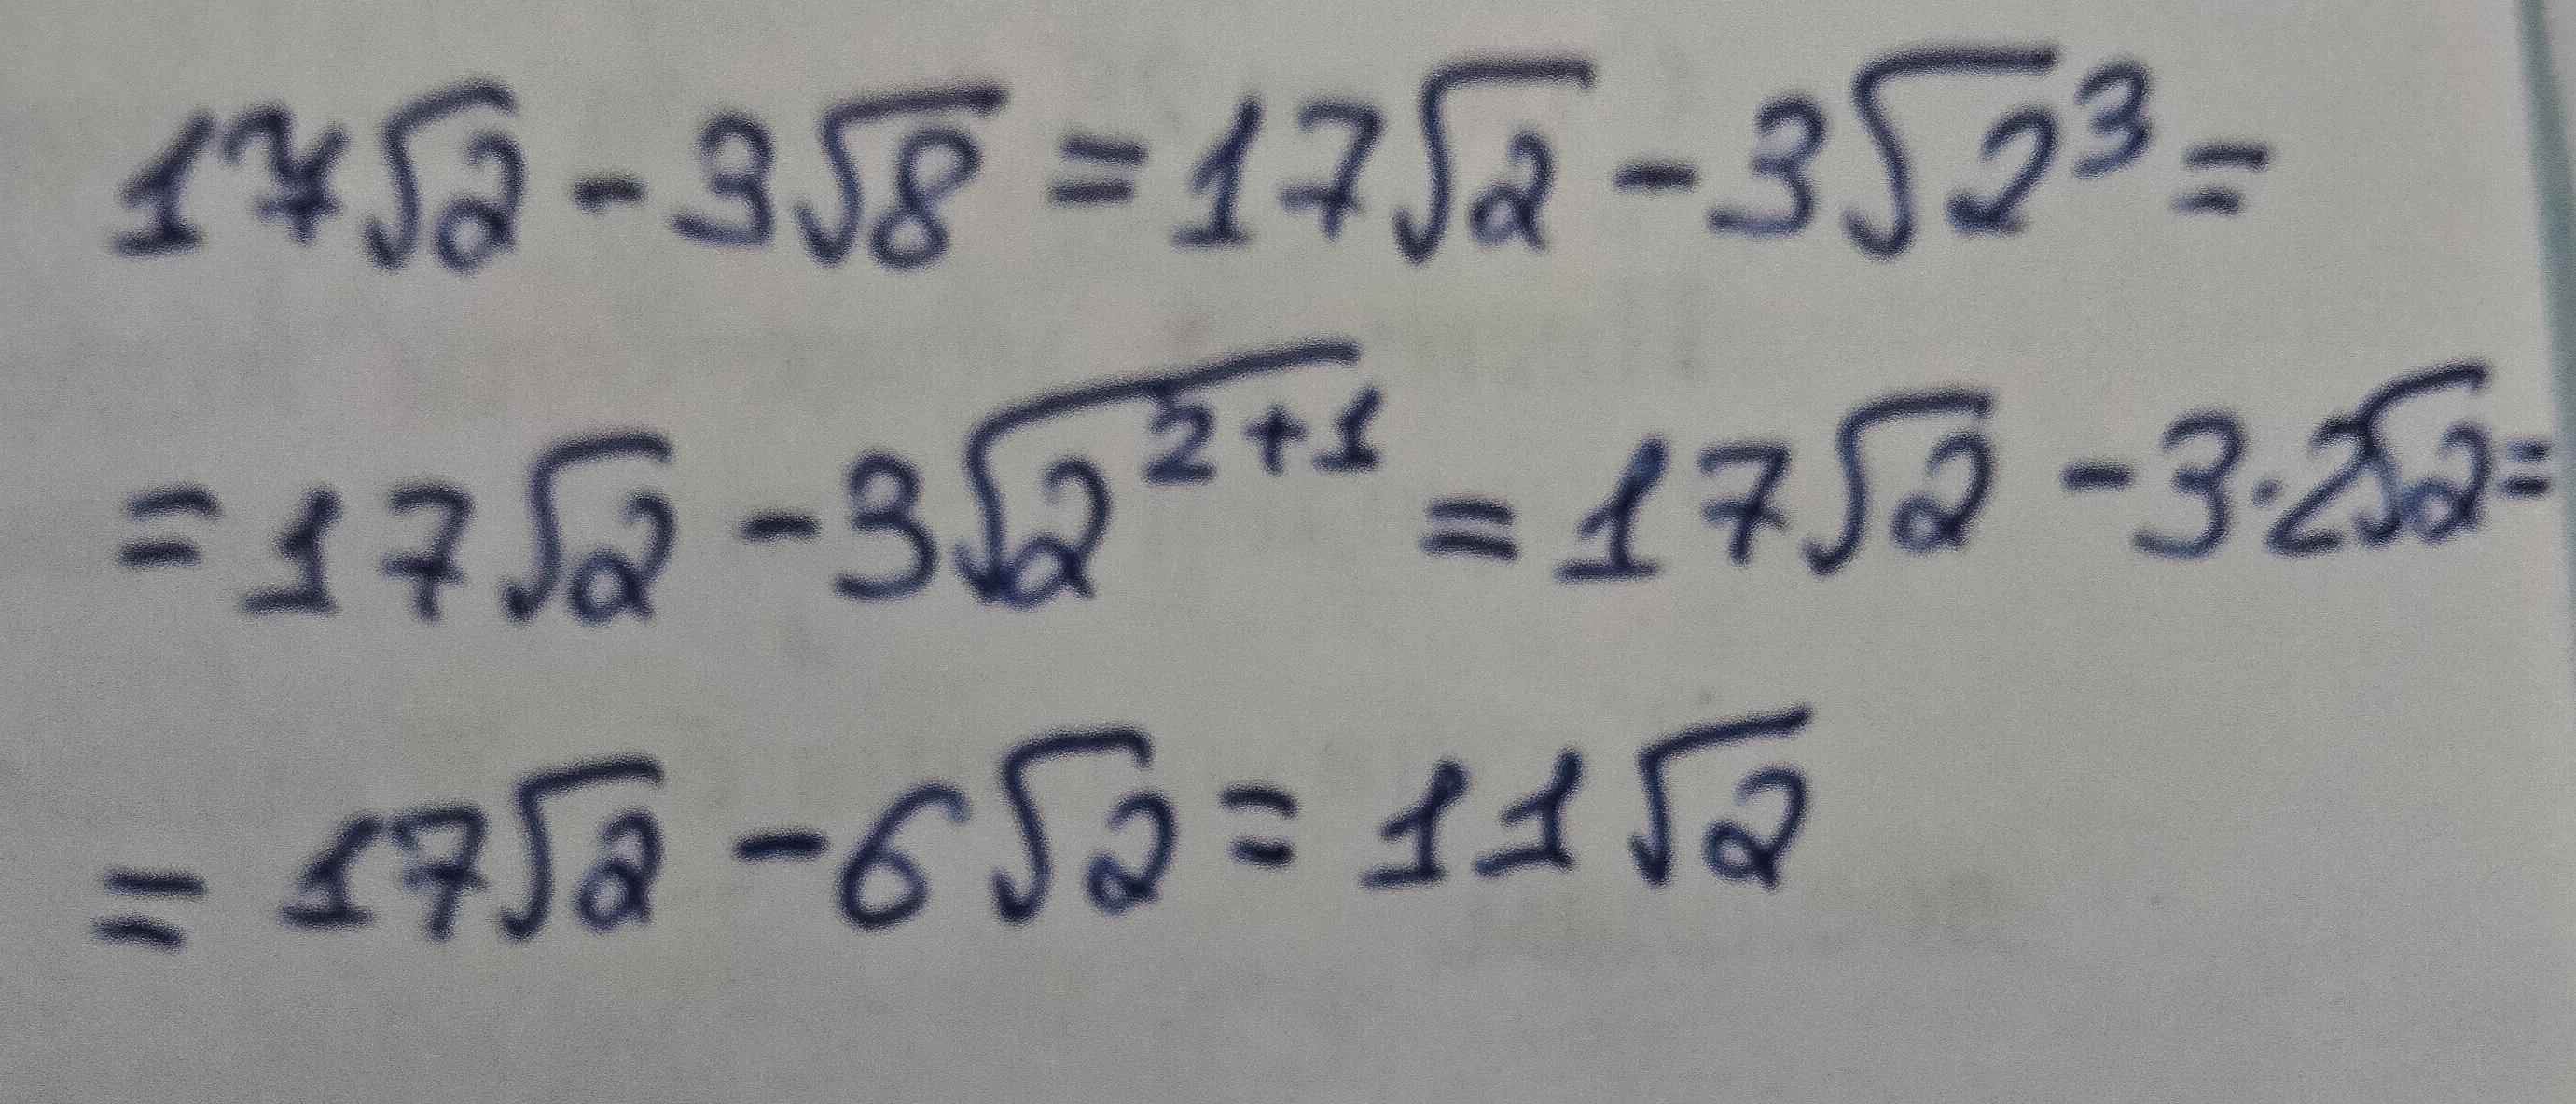 17√2 - 3√8 = 17√2 - 3√2³ =
= 17√2 - 3√2²⁺¹ = 17√2 - 3·2√2 =
= 17√2 - 6√2 = 11√2